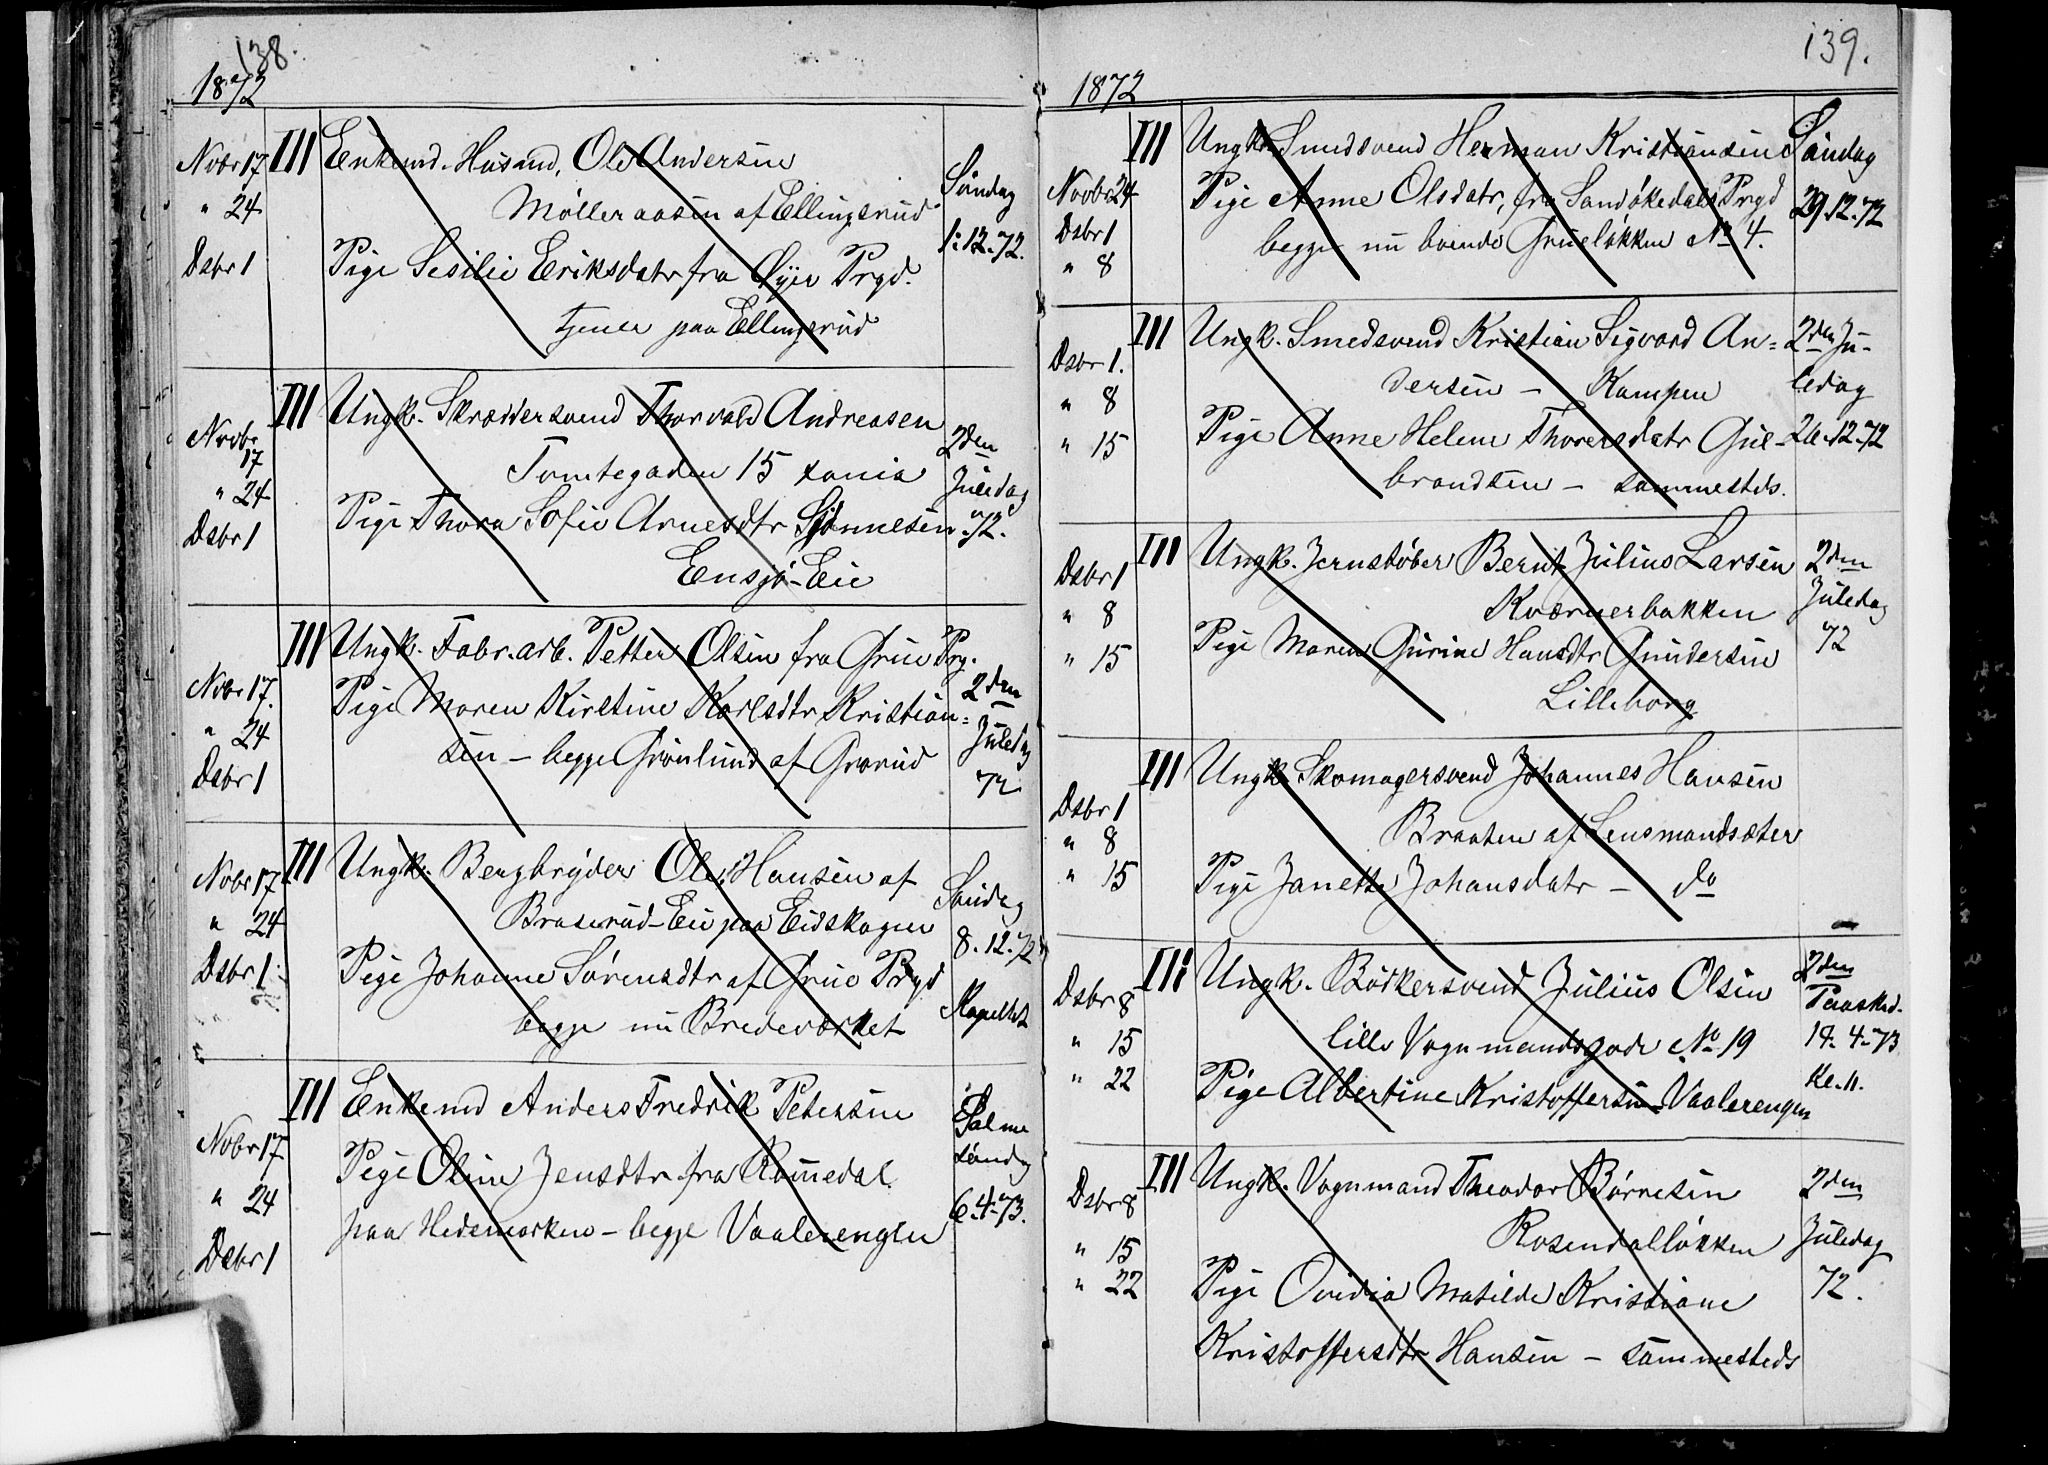 138.
1872
Novbr 17 III Enkemd. Husmd, Ole Andersen
" 24 Mølleraasen af Ellingsrud Søndag
Dsbr 1 Pige Sesilie Eriksdatr fra Øyer Prgd. 1.12.72.
tjener paa Ellingsrud
Novbr 17 III Ungk. Skræddersvend Thorvald Andreasen 2den
" 24 Tomtegaden 15 Xania Juledag
Dsbr 1 Pige Thora Sofie Arnesdtr Simmesen 72.
Ensjø-Eie
Novbr 17. III Ungk. Fabr.arb. Petter Olsen fra Grue Prg.
" 24 Pige Maren Kirstine Karlsdtr Kristian= 2den Juledag
Dsbr 1 sen – begge Grønlund af Grorud 72
Novbr 17 III Ungk. Bergbryder Ole Hansen af Søndag
" 24 Braserud-Eie paa Eidskogen 8.12.72
Dsbr 1 Pige Johanne Sørensdtr af Grue Prgd Kapellet
begge nu Bredeværket
Novbr 17 III Enkemd Anders Fredrik Petersen Palme
" 24 Pige Oline Jensdtr fra Romedal søndag
Dsbr 1 paa Hedemarken – begge Vaalerengen 6.4.73.
139.
1872
Novbr 24 III Ungk. Smedsvend Herman Kristiansen Søndag
Dsbr 1 Pige Anne Olsdatr, fra Sandøkedals Prgd 29.12.72
" 8 begge nu boende Grueløkken No 4.
Dsbr 1. III Ungk. Smedsvend Kristian Sigvard An= 2den Ju-
" 8 dersen – Kampen ledag
" 15 Pige Anne Helene Thorersdatr Gul- 26.12.72
brandsen – sammesteds.
Dsbr 1 III Ungk. Jernstøber Bernt Julius Larsen 2den
" 8 Kværnerbakken Juledag
" 15 Pige Maren Gurine Hansdtr Gundersen 72
Lilleborg
Dsbr 1 III Ungk Skomagersvend Johannes Hansen
" 8 Braaten af Lensmandsæter
" 15 Pige Janette Johansdatr – do
Dsbr 8 III Ungk. Bødkersvend Julius Olsen 2den Paaskd.
" 15 lille Vognmandsgade No 19 14.4.73
" 22 Pige Albertine Kristoffersen Vaalerengen Kl. 11.
Dsbr 8 III Ungk. Vognmand Theodor Børresen 2den
" 15 Rosendalløkken Juledag
" 22 Pige Ovidia Matilde Kristiane 72.
Kristoffersdtr Hansen – sammesteds